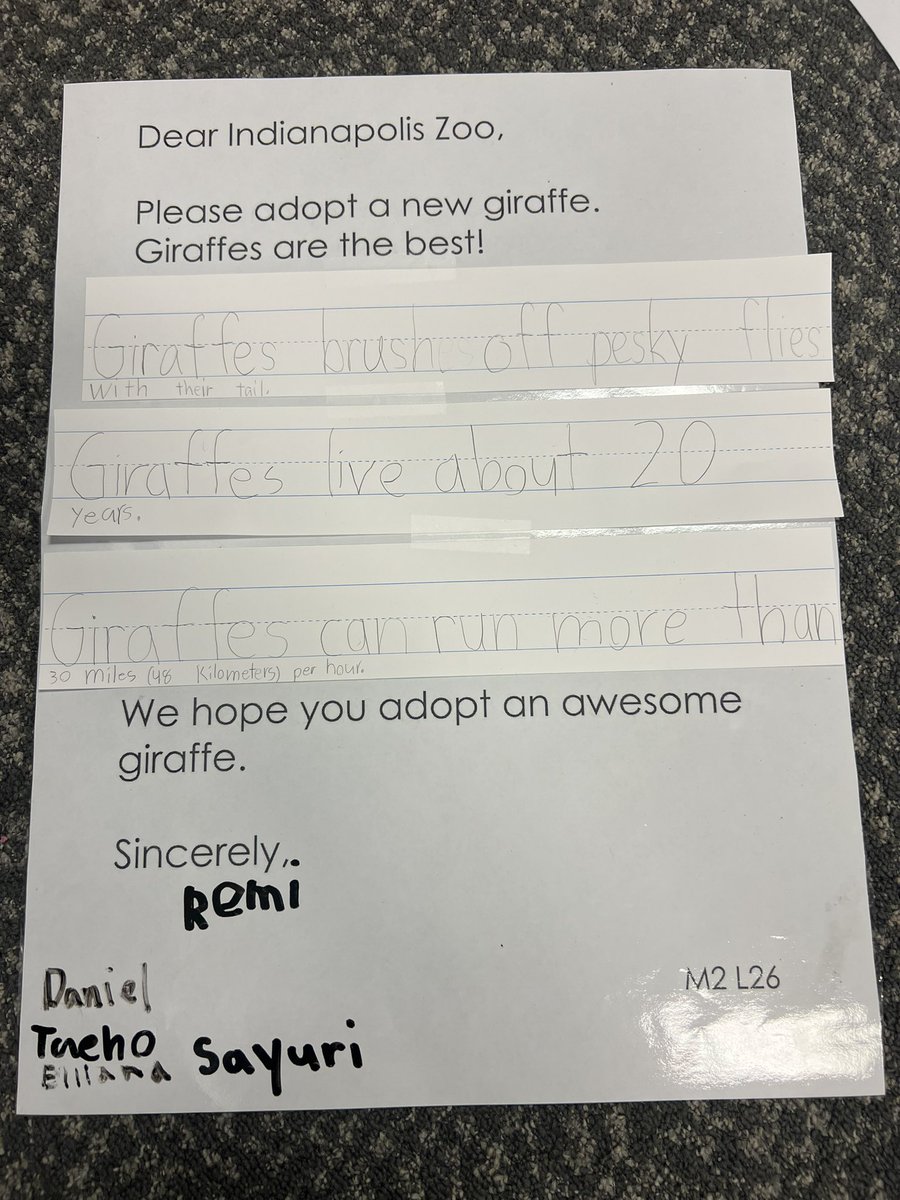 Dear Indianapolis Zoo,
Please adopt a new giraffe.
Giraffes are the best!
Giraffes brush off pesky flies
With their tail.
Giraffes live about 20
years.
Giraffes can run more than
30 miles (48 Kilometers) per hour.
We hope you adopt an awesome
giraffe.
Sincerely,.
Remi
Daniel
Taeho
Elliana
Sayuri
M2 L26